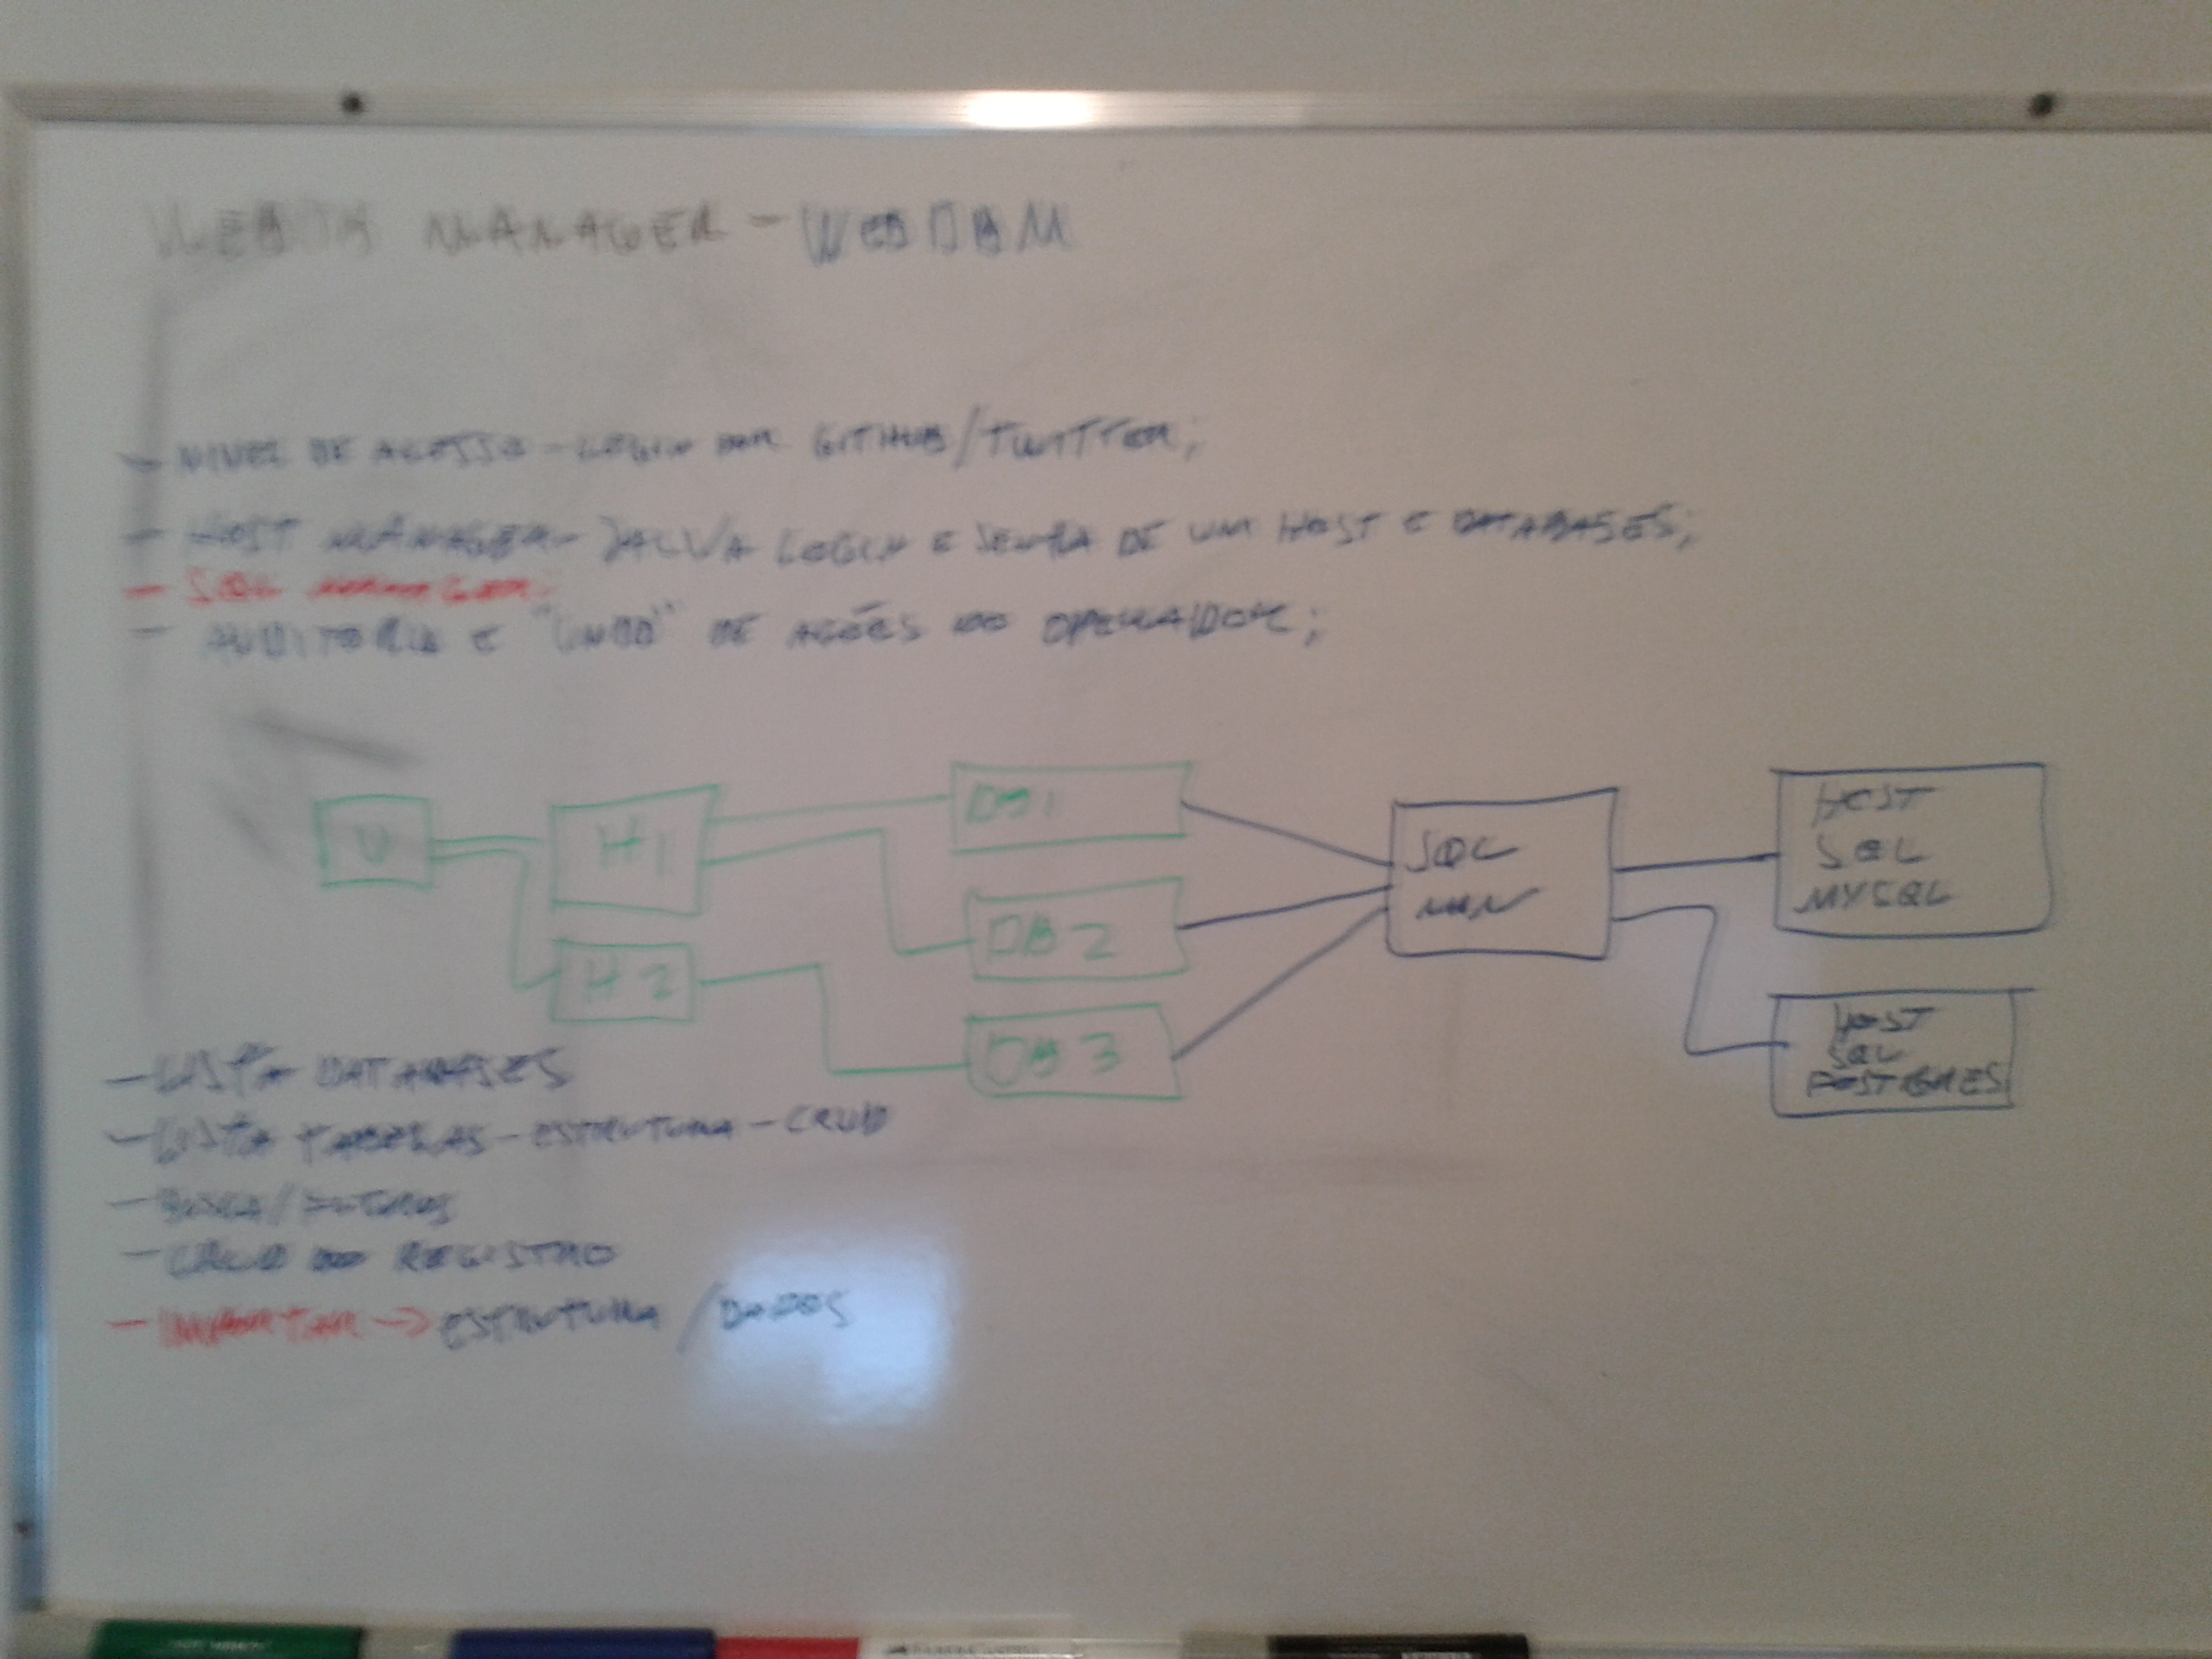 WEBDB MANAGER - WEBDBM
- NIVEL DE ACESSO - LOGIN POR GITHUB/TWITTER;
- HOST MANAGER - SALVA LOGIN E SENHA DE UM HOST E DATABASES;
- SQL MANAGER;
- AUDITORIA E "UNDO" DE AÇÕES DO OPERADOR;
U
H1
H2
DB1
DB2
DB3
SQL
MAN
HOST
SQL
MYSQL
HOST
SQL
POSTGRES
- LISTA DATABASES
- LISTA TABELAS - ESTRUTURA - CRUD
- BUSCA/FILTROS
- CRUD DO REGISTRO
- IMPORTAR → ESTRUTURA / DADOS